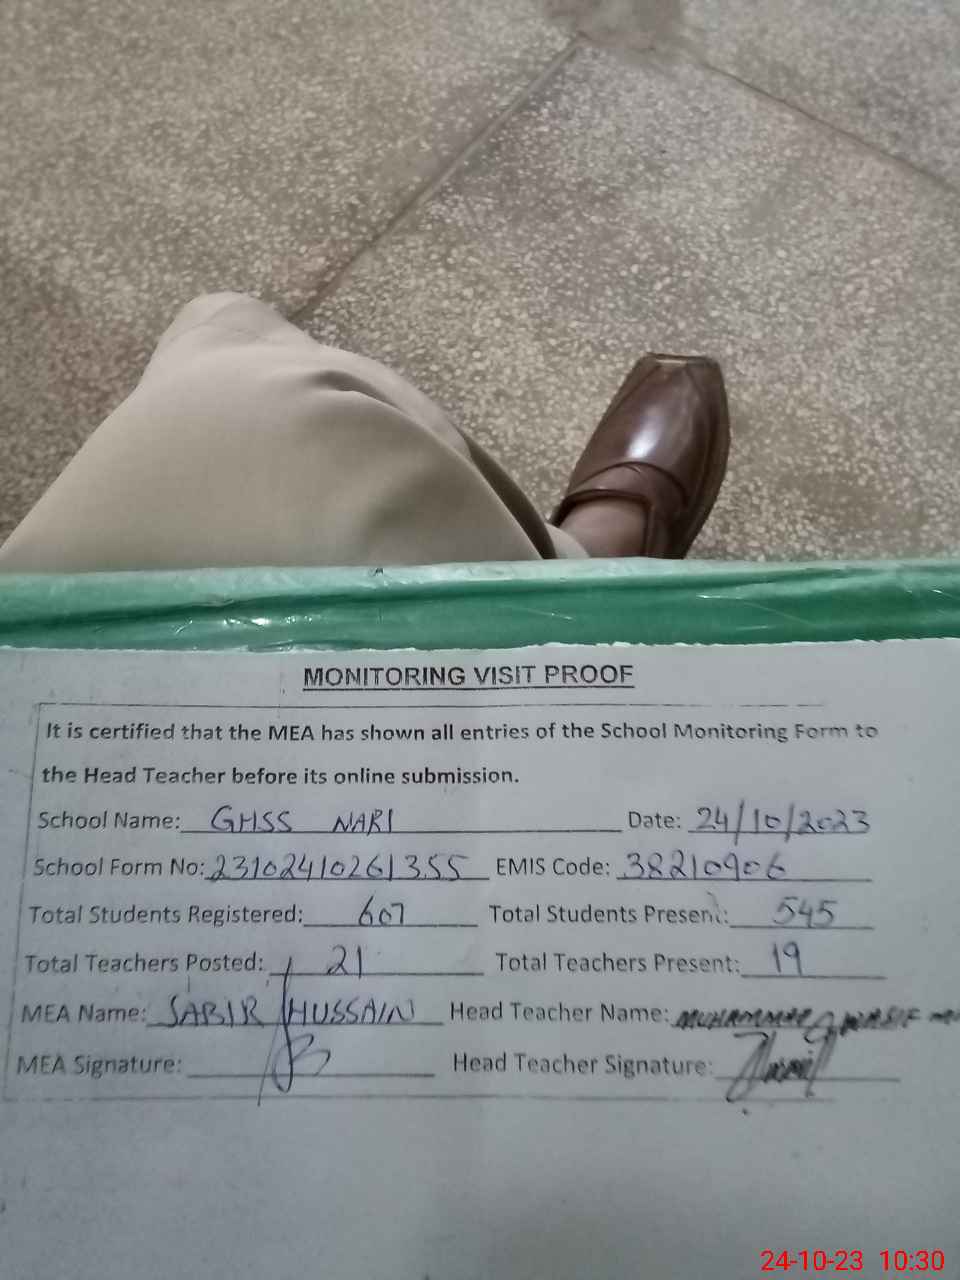 MONITORING VISIT PROOF
It is certified that the MEA has shown all entries of the School Monitoring Form to
the Head Teacher before its online submission.
School Name: GHSS NARI Date: 24/10/2023
School Form No: 23102410261355 EMIS Code: 38210906
Total Students Registered: 607 Total Students Present: 545
Total Teachers Posted: 21 Total Teachers Present: 19
MEA Name: SABIR HUSSAIN Head Teacher Name: MUHAMMAD WASIF
MEA Signature: Head Teacher Signature:
24-10-23 10:30